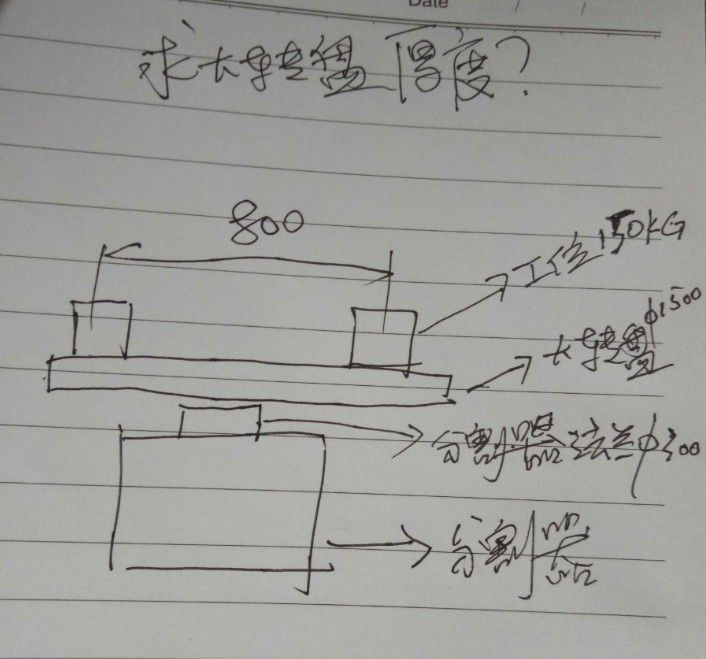 Date
求大转盘厚度?
800
工位150KG
大转盘φ1500
分割器法兰φ300
分割器